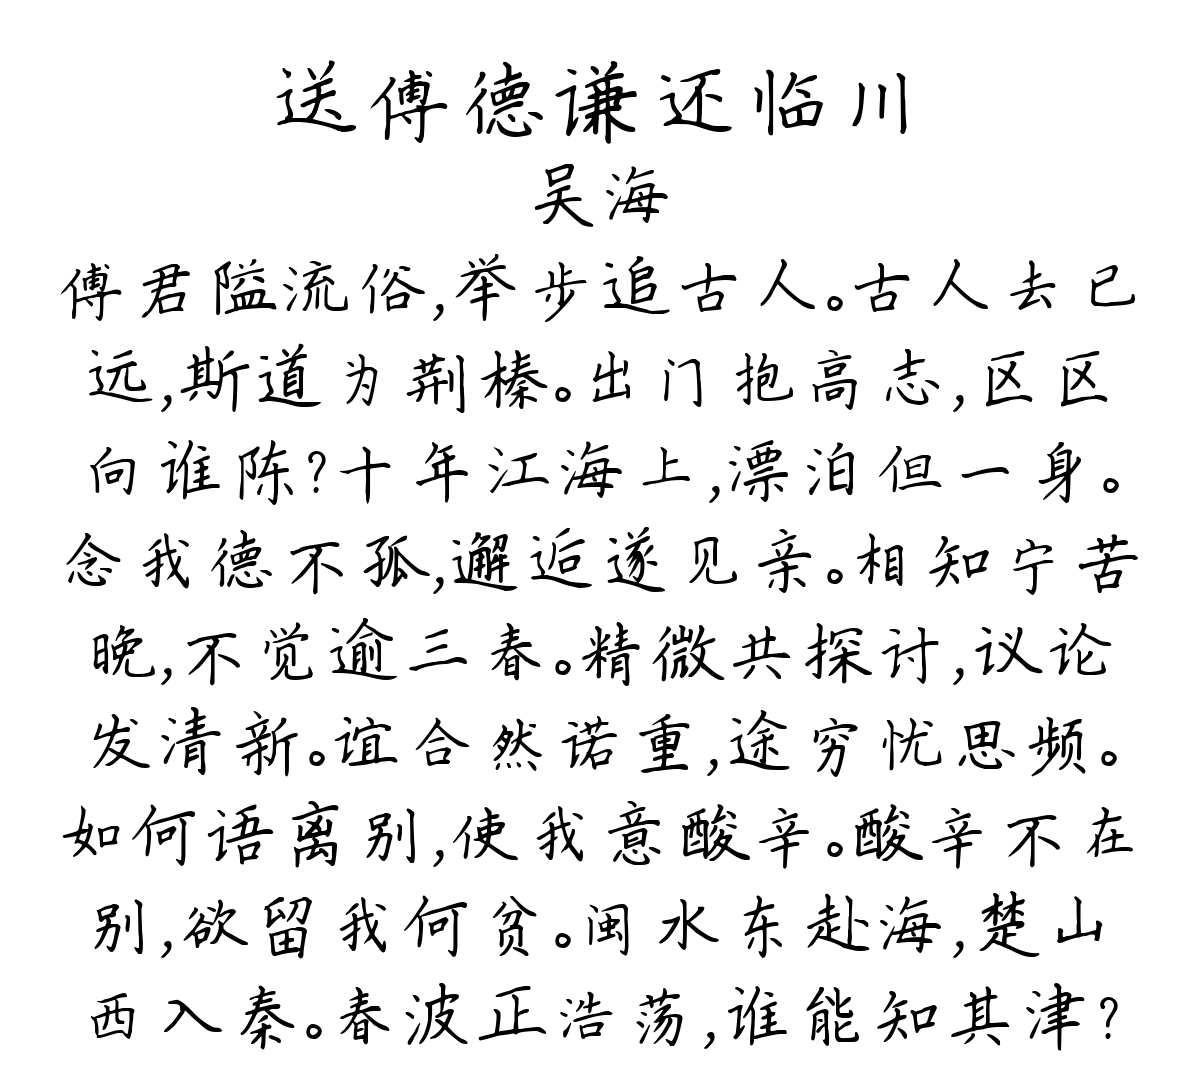 送傅德谦还临川
吴海
傅君隘流俗,举步追古人。古人去已
远,斯道为荆榛。出门抱高志,区区
向谁陈?十年江海上,漂泊但一身。
念我德不孤,邂逅遂见亲。相知宁苦
晚,不觉逾三春。精微共探讨,议论
发清新。谊合然诺重,途穷忧思频。
如何语离别,使我意酸辛。酸辛不在
别,欲留我何贫。闽水东赴海,楚山
西入秦。春波正浩荡,谁能知其津?